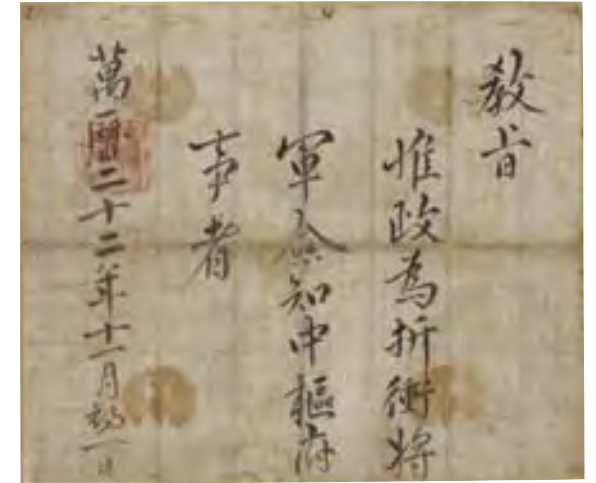 教旨
惟政為折衝將
軍僉知中樞府
事者
萬曆二十二年十一月初一日